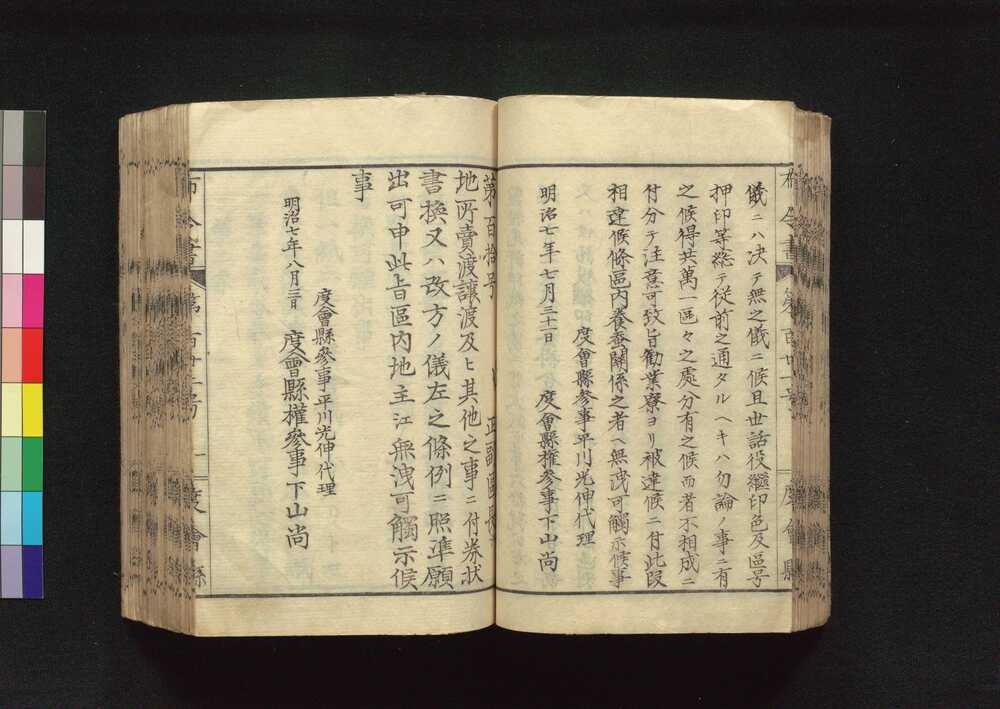 儀ニハ决テ無之儀ニ候且世話役繼印色及區号
押印等総テ従前之通タルヘキハ勿論ノ事ニ有
之候得共萬一區々之處分有之候而者不相成ニ
付分テ注意可致旨勧業寮ヨリ被達候ニ付此段
相達候條區内養蚕関係之者ヘ無洩可觸示候事
度會縣参事平川光伸代理
明治七年七月三十一日 度會縣権参事下山尚
布令書 第百廿一号 度會縣
第百拾号 正副區長
地所賣渡譲渡及ヒ其他之事ニ付券状
書換又ハ改方ノ儀左之條例ニ照準願
出可申此旨區内地主江無洩可觸示候
事
度會縣參事平川光伸代理
明治七年八月三日 度會縣權參事下山尚
布令書 第百廿二号 度會縣